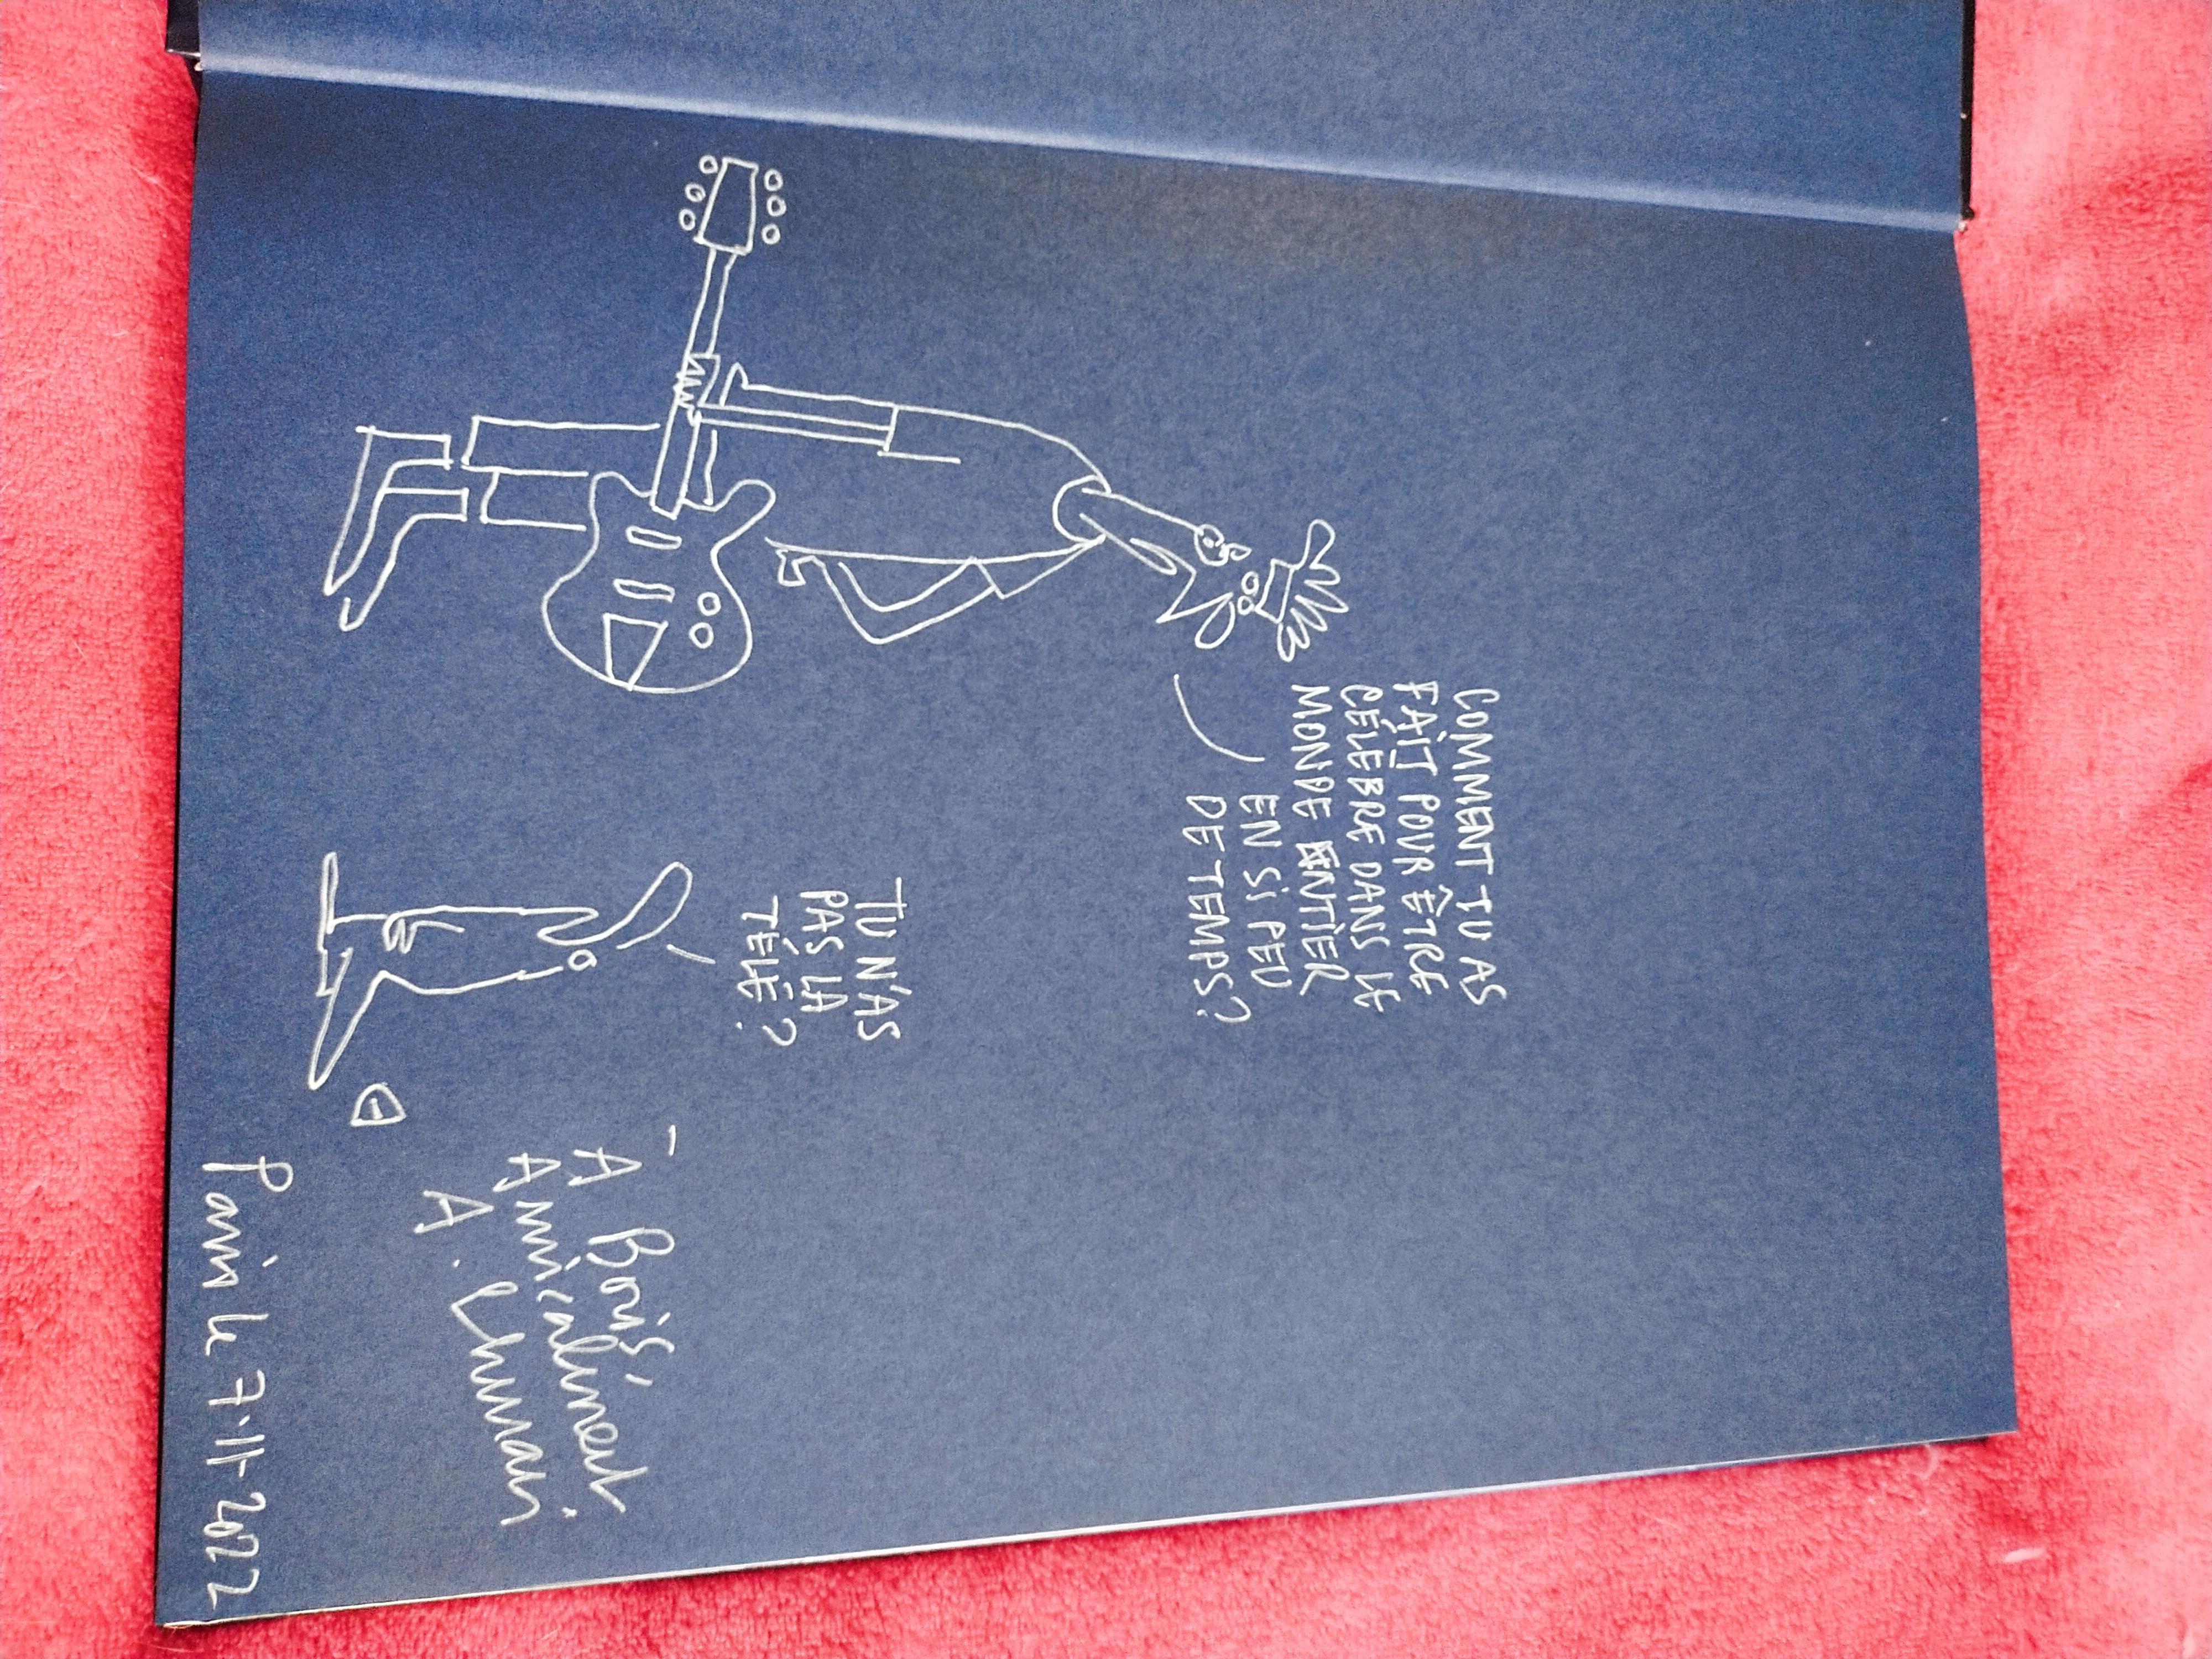 COMMENT TU AS
FAIT POUR ÊTRE
CÉLEBRE DANS LE
MONDE ENTIER
EN SI PEU
DE TEMPS?
TU N'AS
PAS LA
TÉLÉ?
- A Boris,
Amicalement
A.
Paris le 7-11-2022